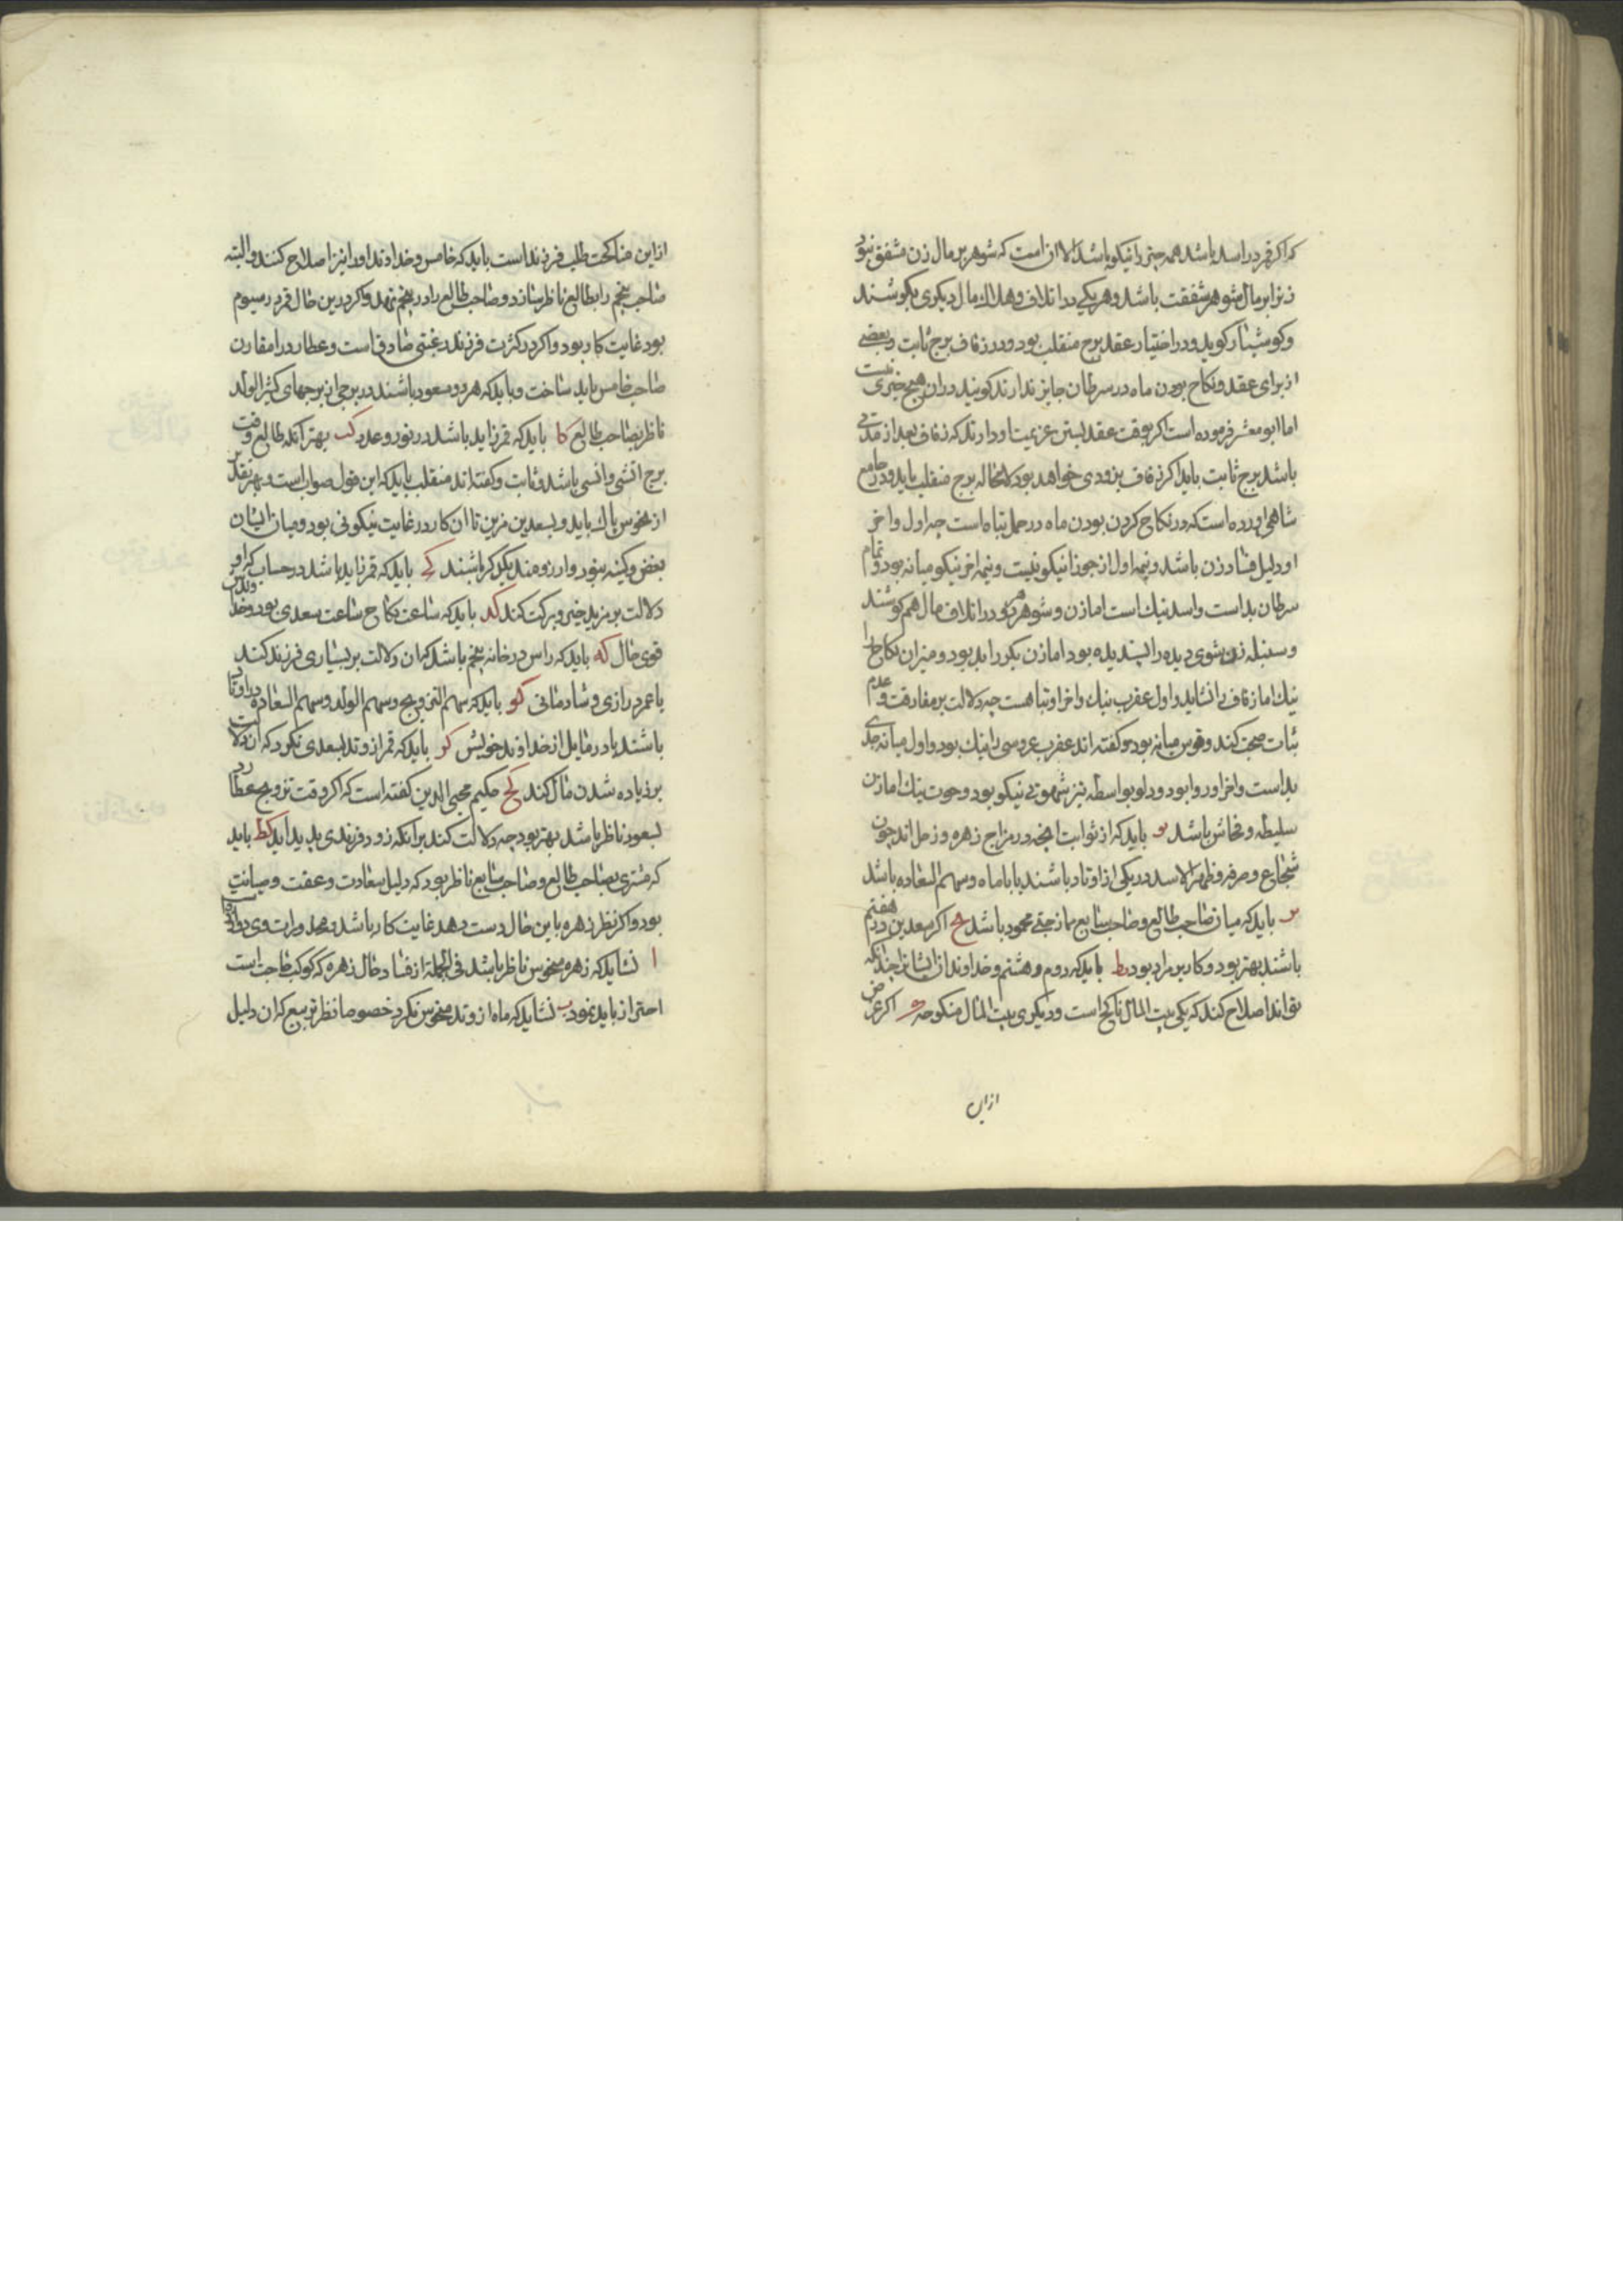 که اگر قمر در اسد باشد همه چیز را نیکو باشد الا آن است که شوهر بر مال زن مشفق نبود
زنرا بر مال شوهر شفقت باشد و هر یکی در اتلاف و هلاک مال دیگری بکوشند
و کوشیار گوید و در اختیار عقد برج منقلب بود و در زفاف برج ثابت و بعضی
از برای عقد و نکاح بودن ماه در سرطان جایز ندارند گویند در آن هیچ خیری نیست
اما ابو معشر فرموده است اگر بوقت عقد بستن عزیمت او دارند که زفاف بعد از مدتی
باشد برج ثابت باید اگر زفاف بزودی خواهد بود لامحاله برج منقلب باید و در جامع
شاهی آورده است که در نکاح کردن بودن ماه در حمل تباه است چه اول و آخر
او دلیل فساد زن باشد و نیمه اول از جوزا نیکو نیست و نیمه آخر نیکو میانه بود و تمام
سرطان بد است و اسد نیک است اما زن و شوهر در اتلاف مال هم کوشند
و سنبله زن شوی دیده را پسندیده بود اما زن بکر را بد بود و میزان نکاح را
نیک اما زفاف را نشاید و اول عقرب نیک و آخر او تباهست چه دلالت بر مفارقت و عدم
ثبات صحبت کند و قوس میانه بود و گفته اند عقرب عروسی را نیک بود و اول میانه جدی
بد است و آخر او روا بود و دلو بواسطه تیز شهوتی نیکو بود و حوت نیک اما زن
سلیطه و فحاش باشد یو باید که از ثوابت آنچه در مزاج زهره و زحل اند چون
شجاع و صرفه و ظهر الاسد در یکی از اوتاد باشند یا با ماه و سهم السعاده باشد
یز باید که میان صاحب طالع و صاحب سابع ممازجتی محمود باشد یح اگر سعدین در دهم هفتم
باشند بهتر بود و کار بر مراد بود یط باید که دوم و هشتم و خداوندان ایشانرا چندانکه
تواند اصلاح کند که یکی بیت المال ناکح است و دیگری بیت المال منکوحه اگر غرض
از این
از این مناکحت طلب فرزند است باید که خامس و خداوند او را نیز اصلاح کنند و البته
صاحب پنجم را بطالع ناظر سازد و صاحب طالع را در پنجم نهد و اگر درین حال قمر در سیوم
بود غایت کار بود و اگر در کثرت فرزند رغبتی صادق است و عطارد را مقارن
صاحب خامس باید ساخت و باید که هر دو مسعود باشند در برجی از برجهای کثیر الولد
ناظر بصاحب طالع کا باید که قمر زاید باشد در نور و عدد کب بهتر آنکه طالع وقت
برج آتشی و انسی باشد و ثابت و گفته اند منقلب باید که این قول صواب است و بهر تقدیر
از نحوس پاک باید و بسعدین مزین تا آن کار در غایت نیکوئی بود و میان ایشان
بغض و کینه نبود و آرزومند یکدیگر باشند کج باید که قمر زاید باشد در حساب که او
دلالت بر مزید خیر و برکت کند کد باید که ساعت نکاح ساعت سعدی بود و خداوندش
قوی حال که باید که راس در خانه پنجم باشد که آن دلالت بر بسیاری فرزند کند
با عمر درازی و شادمانی کو باید که سهم التزویج و سهم الولد و سهم السعاده در اوتاد
باشند یا در مایل از خداوند خویش کز باید که قمر از وتد بسعدی نگرد که آن دلالت
بر زیاده شدن مال کند کح حکیم محیی الدین گفته است که اگر وقت تزویج عطارد
بسعود ناظر باشد بهتر بود چه دلالت کند بر آنکه زود فرزندی پدید آید کط باید
که مشتری بصاحب طالع و صاحب سابع ناظر بود که دلیل سعادت و عفت و صیانت
بود و اگر نظر زهره با این حال دست دهد غایت کار باشد و
ا نشاید که زهره بنحوس ناظر باشد فی الجمله از فساد حال زهره که کوکب حاجت است
احتراز باید نمود ب نشاید که ماه از وتد بنحوس نگرد خصوصا نظر تربیع که آن دلیل